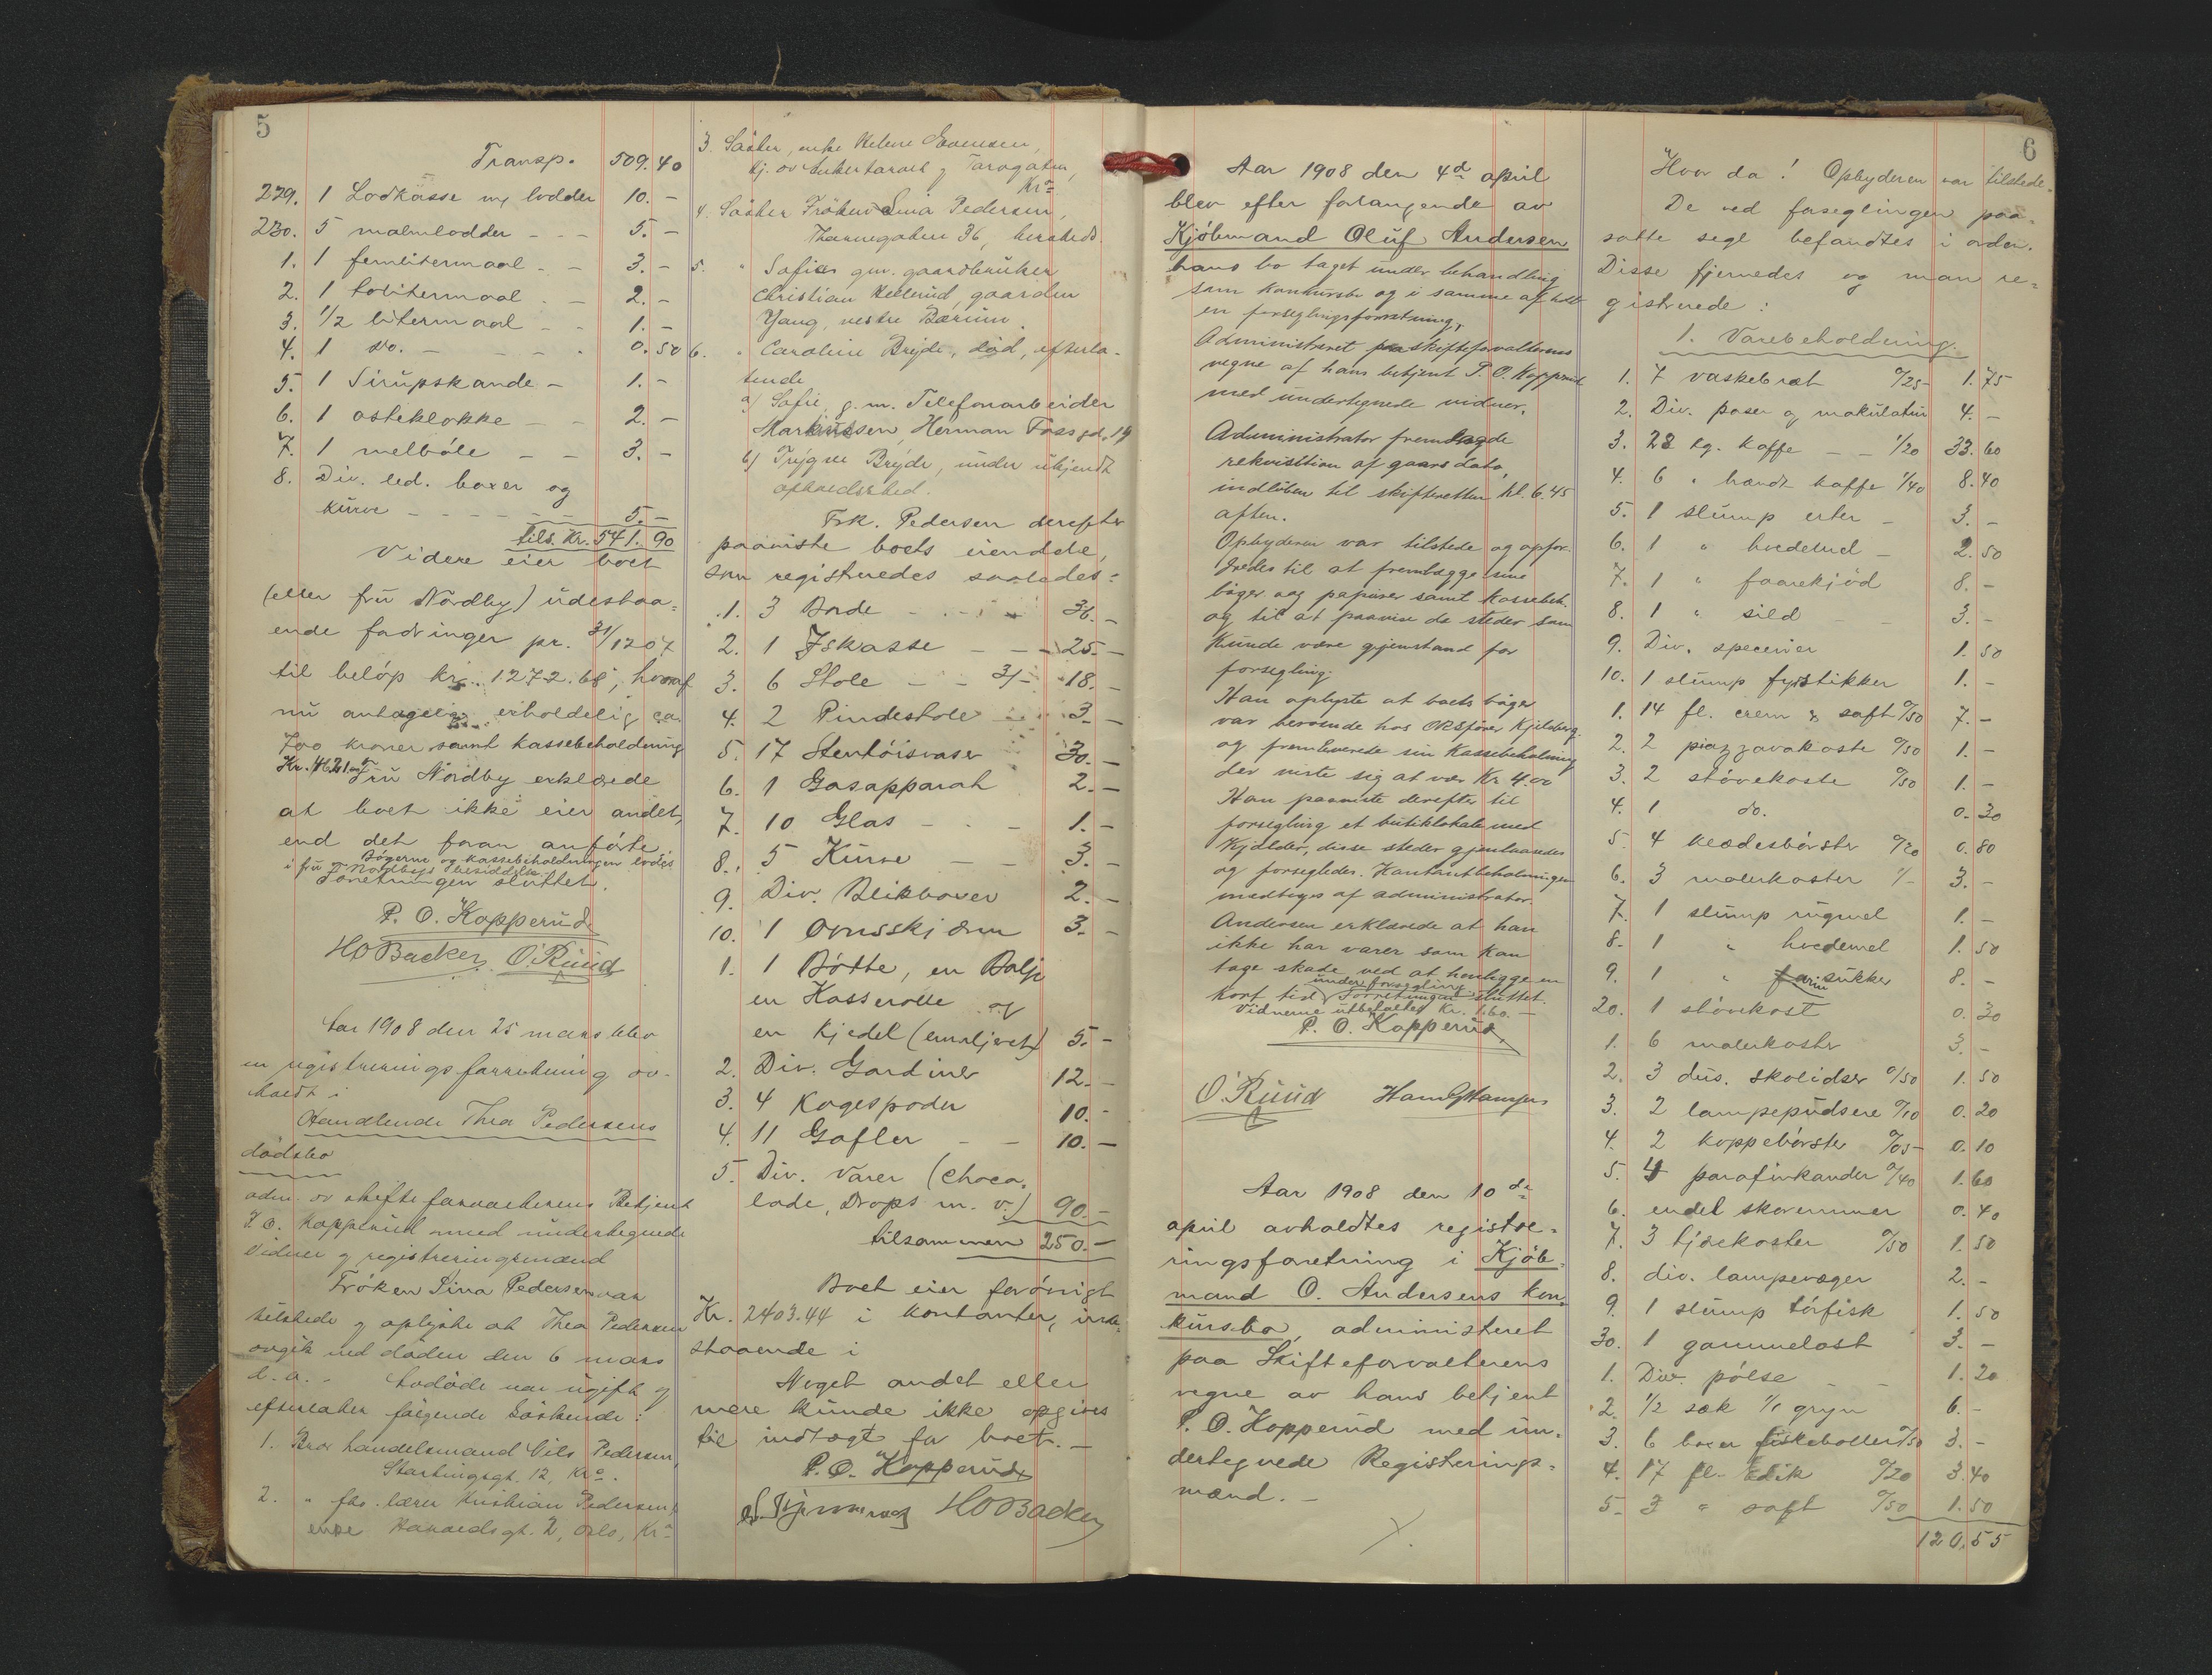 5
Transp. 509.40
229. 1 Lodkasse m/ lodder 10.-
230. 5 malmlodder - - - 5.-
1. 1 femlitermaal - - 3.-
2. 1 tolitermaal - - 2.-
3. 1/2 litermaal - - 1.-
4. 1 do. - - - 0.50
5. 1 Sirupskande - 1.-
6. 1 osteklokke - - 2.-
7. 1 melböle - - 3.-
8. Div. led. boxer og
kurve - - - - - 5.-
tils. Kr. 541.90
Videre eier boet
(eller fru Nordby) udestaa-
ende fordringer pr. 31/12 07
til belöp kr. 1272.68, hvoraf
nu antagelig erholdelig ca.
700 kroner samt kassebeholdning
Kr. Fru Nordby erklærede
at boet ikke eier andet,
end det foran anförte.
Bögerne og kassebeholdningen lodes
i fru Nordbys besiddelse.
Forretningen sluttet.
P. O. Kopperud
HO Backer O. Ruud
Aar 1908 den 25 mars blev
en registreringsforretning av-
holdt i
Handlende Thea Pedersens
dödsbo
adm. av skifteforvalterens Betjent
P. O. Kopperud med undertegnede
Vidner og registreringsmænd
Fröken Lina Pedersen var
tilstede og oplyste at Thea Pedersen
avgik ved döden den 6 mars
d.a. - Avdöde var ugift og
efterlater fölgende Söskende:
1. Bror handelsmand Nils Pedersen,
gt. 12, Kr.a.
2. " fhv. lærer Kristian Pedersen,
gt. 2, Oslo, Kr.a
3. Söster, enke Helene Evensen,
hj. av Akertorvet og Torvgaten,
Kr.a
4. Söster Fröken Lina Pedersen,
36, hersteds.
5. " Sofie gm. gaardbruker
Christian Hellerud, gaarden
vestre Bærum.
6. " Caroline Bryde, död, efterla-
tende
a) Sofie g.m. Telefonarbeider
Markussen, Herman Fossgd. 14
b) Trygve Bryde, under ukjendt
opholdssted.
Frk. Pedersen derefter
paaviste boets eiendele,
som registreredes saaledes:
1. 3 Borde - - - 36.-
2. 1 Iskasse - - - 25.-
3. 6 Stole - - 3/- 18.-
4. 2 Pindestole - - 3.-
5. 17 Stentöisvaser 30.-
6. 1 Gasapparat 2.-
7. 10 Glas - - - 1.-
8. 5 Kurve - - 3.-
9. Div. Blikboxer 2.-
10. 1 Ovnsskjærm 3.-
1. 1 Bötte, en Balje
en Kasserolle og
en Kjedel (emaljeret) 5.-
2. Div. Gardiner 12.-
3. 4 Kagespader 10.-
4. 11 Gafler - - 10.-
5. Div. Varer (Choco-
lade, Drops m. v.) 90.-
tilsammen 250.-
Boet eier forövrigt
Kr. 2403.44 i kontanter, inde-
staaende i
Noget andet eller
mere kunde ikke opgives
til indtægt for boet. -
P. O. Kopperud
HO Backer
6
Aar 1908 den 4d april
blev efter forlangende av
Kjöbmand Oluf Andersen
hans bo taget under behandling
som konkursbo og i samme afholdt
en forseglingsforretning,
Administreret paa skifteforvalterens
vegne af hans betjent P. O. Kopperud
med undertegnede vidner.
Administrator fremlagde
rekvisition af gaars dato,
indlöben til skifteretten kl. 6.45
aften.
Opbyderen var tilstede og opfor-
dredes til at fremlægge sine
böger og papirer samt kassebeh.
og til at paavise de steder som
kunde være gjenstand for
forsegling.
Han oplyste at boets böger
var beroende hos ORSförer Kjelsberg
og fremleverede sin Kassebeholdning
der viste sig at være Kr. 4.00
Han paaviste derefter til
forsegling et butiklokale med
Kjælder, disse steder gjenlaasedes
og forsegledes. Kontantbeholdningen
medtoges af administrator.
Andersen erklærede at han
ikke har varer som kan
tage skade ved at henligge en
kort tid under forsegling. Forretningen sluttet.
Vidnerne utbetaltes Kr. 1.60. -
P. O. Kopperud
O. Ruud
Aar 1908 den 10 de
april avholdtes registre-
ringsforretning i Kjöb-
mand O. Andersens kon-
kursbo, administreret
paa Skifteforvalterens
vegne av hans betjent
P. O. Kopperud med un-
dertegnede Registerings-
mænd. -
Hvor da! Opbyderen var tilstede.
De ved forseglingen paa-
satte segl befandtes i orden.
Disse fjernedes og man re-
gistrerede:
1. Varebeholdning.
1. 7 vaskebræt 0/25- 1.75
2. Div. poser og makulatur 4.-
3. 28 kg. kaffe - - 1/20 33.60
4. 6 " brændt kaffe 1/40 8.40
5. 1 slump erter - 3.-
6. 1 " hvedemel - 2.50
7. 1 " faarekjöd 8.-
8. 1 " sild - - 3.-
9. Div. specerier 1.50
10. 1 slump fyrstikker 1.-
1. 14 fl. crem & saft 0/50 7.-
2. 2 piazzavakoste 0/50 1.-
3. 2 stövekoste 0/50 1.-
4. 1 do. 0.30
5. 4 klædesbörster 0/20 0.80
6. 3 malerkoster 1/- 3.-
7. 1 slump rugmel 1.-
8. 1 " hvedemel 1.50
9. 1 " farin sukker 8.-
20. 1 stövekost 0.30
1. 6 malerkoster 3.-
2. 3 dus. skolidser 0/50 1.50
3. 2 lampepudsere 0/10 0.20
4. 2 koppebörster 0/05- 0.10
5. 4 parafinkander 0/40 1.60
6. endel skoremmer 0.40
7. 3 tjærekoster 0/50 1.50
8. div. lampevæger 2.-
9. 1 slump törfisk 1.50
30. 1 gammelost 3.-
1. Div. pölse - - 1.20
2. 1/2 sæk 1/1 gryn 6.-
3. 6 boxer fiskeboller 0/50 3.-
4. 17 fl. Edik 0/20 3.40
5. 3 " saft 0/50 1.50
120.55